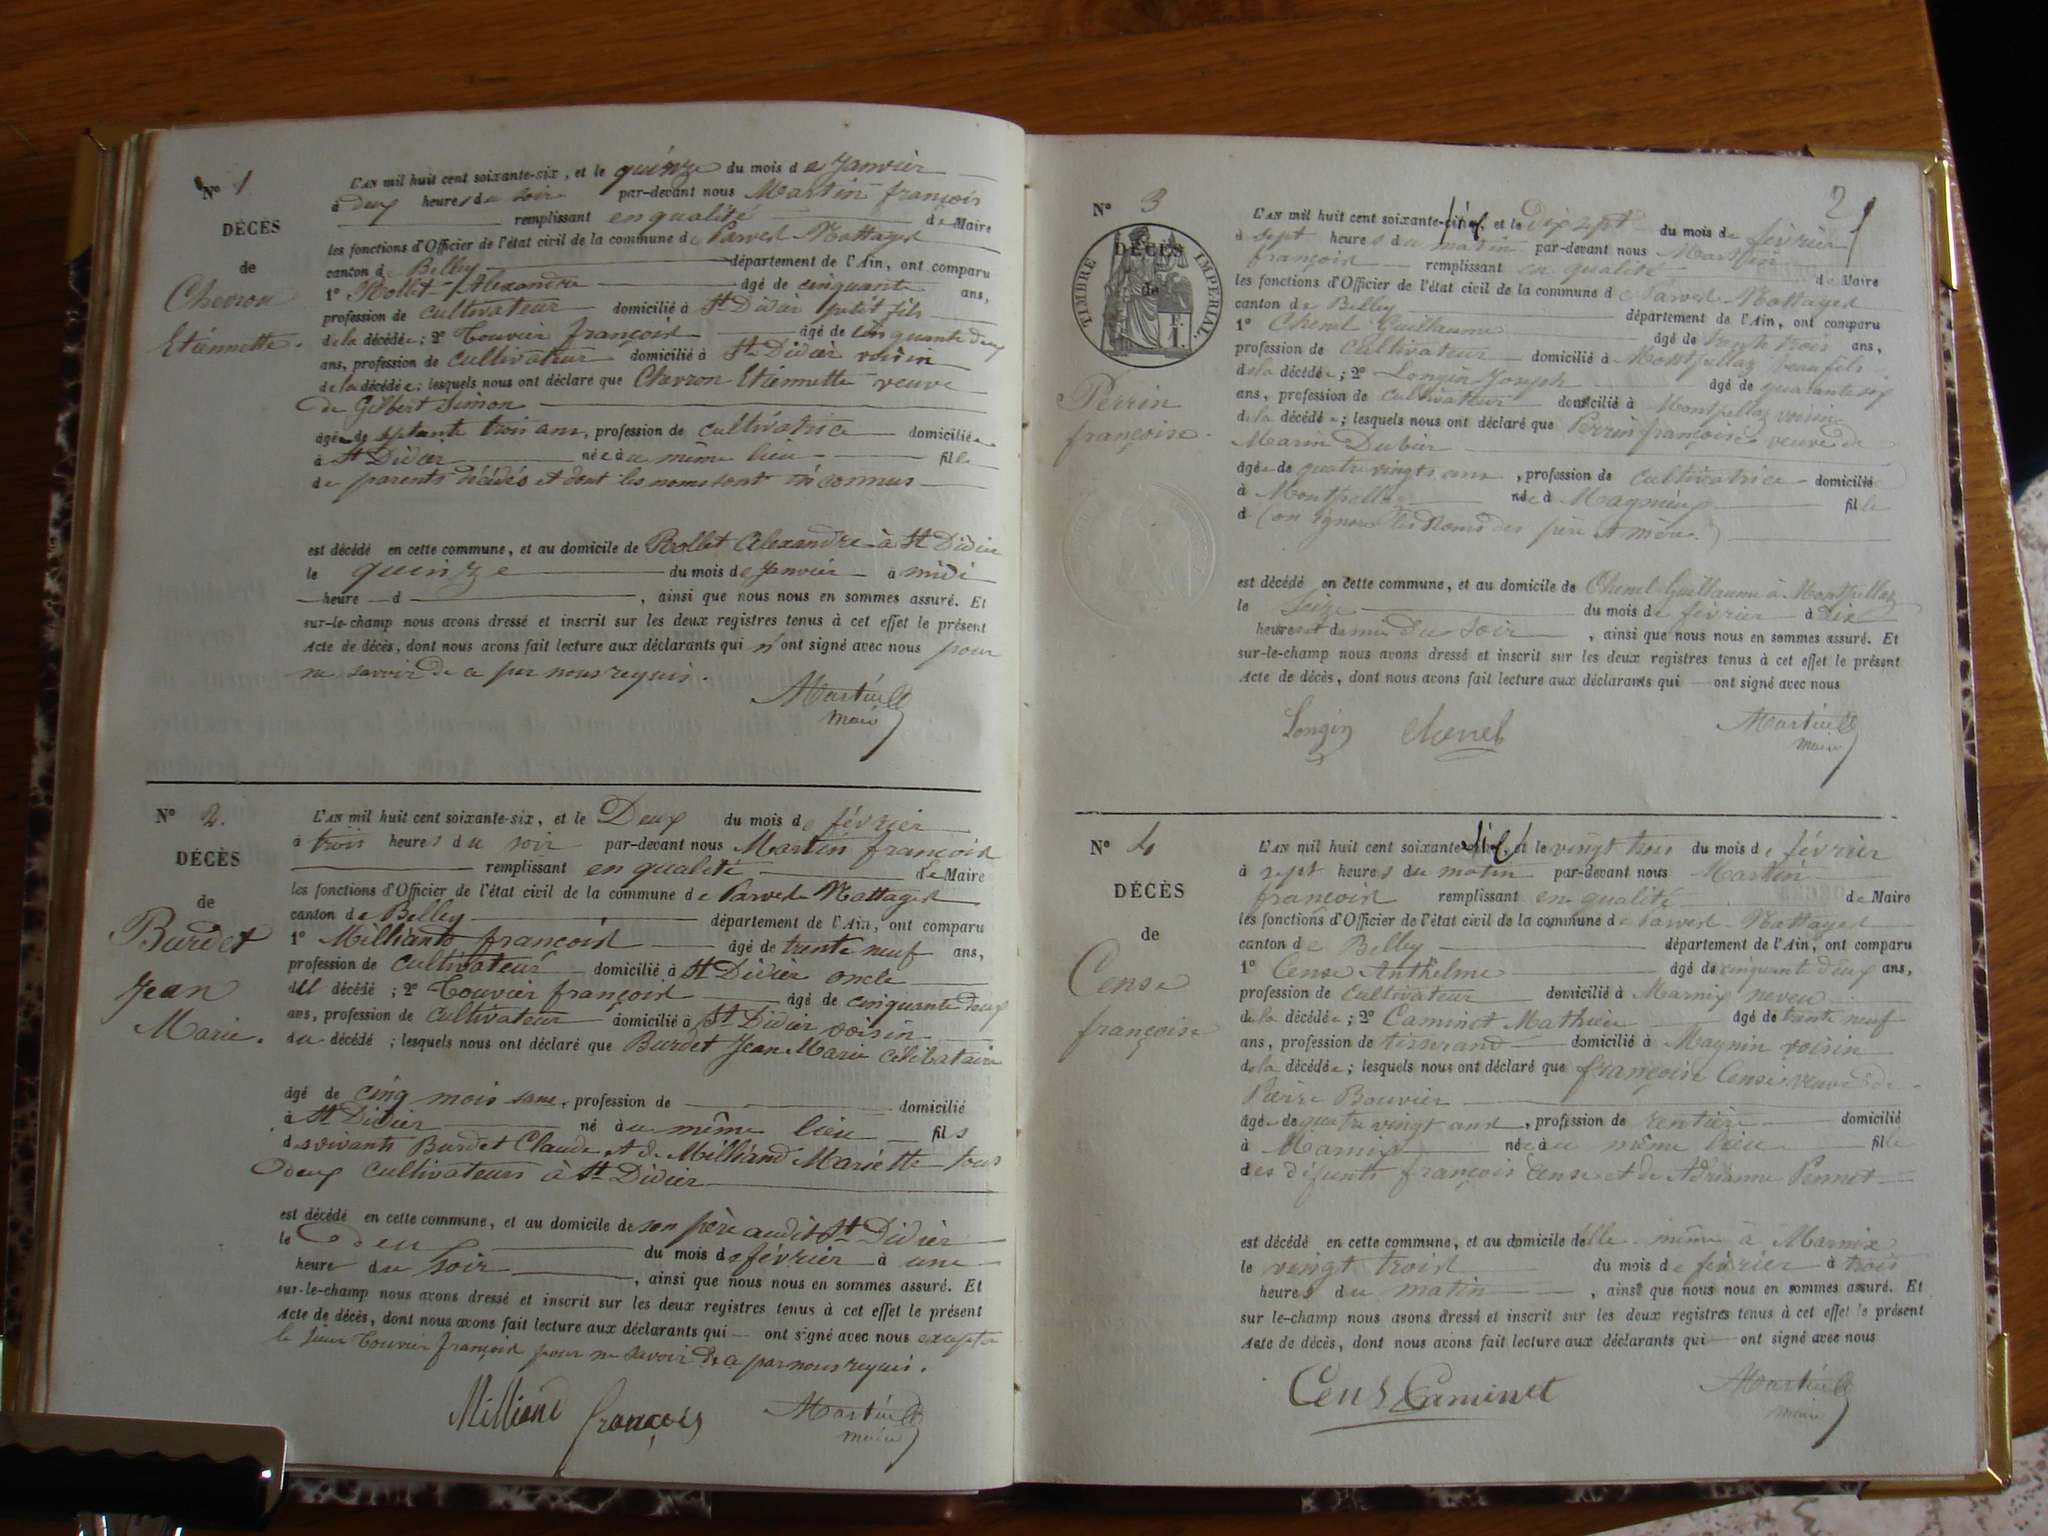 N° 1
DÉCÈS
de
Chevron
Etiennette.
L'AN mil huit cent soixante-six, et le quinze du mois de Janvier
à deux heures du soir par-devant nous Martin françois
remplissant en qualité de Maire
les fonctions d'Officier de l'état civil de la commune de Parves Nattages
canton de Belley département de l'Ain, ont comparu
1° Rollet Alexandre âgé de cinquante ans,
profession de cultivateur domicilié à St Didier petit fils
de la décédée; 2° Touvier françois âgé de cinquante deux
ans, profession de cultivateur domicilié à St Didier voisin
de la décédée; lesquels nous ont déclaré que Chevron Etiennette veuve
de Gilbert Simon
âgée de septante trois ans, profession de cultivatrice domiciliée
à St Didier née à au même lieu fille
de parents décédés et dont les noms sont inconnus
est décédé en cette commune, et au domicile de Rollet Alexandre à St Didier
le quinze du mois de Janvier à midi
heure d , ainsi que nous nous en sommes assuré. Et
sur-le-champ nous avons dressé et inscrit sur les deux registres tenus à cet effet le présent
Acte de décès, dont nous avons fait lecture aux déclarants qui n'ont signé avec nous pour
ne savoir de ce par nous requis.
Martin
maire
N° 2.
DÉCÈS
de
Burdet
Jean
Marie.
L'AN mil huit cent soixante-six, et le Deux du mois de février
à trois heures du soir par-devant nous Martin françois
remplissant en qualité de Maire
les fonctions d'Officier de l'état civil de la commune de Parves Nattages
canton de Belley département de l'Ain, ont comparu
1° Milliand françois âgé de trente neuf ans,
profession de cultivateur domicilié à St Didier oncle
du décédé; 2° Touvier françois âgé de cinquante deux
ans, profession de cultivateur domicilié à St Didier voisin
du décédé; lesquels nous ont déclaré que Burdet Jean Marie célibataire
âgé de cinq mois sans, profession de domicilié
à St Didier né à au même lieu fils
des vivants Burdet Claude et de Milliand Mariette tous
deux cultivateurs à St Didier
est décédé en cette commune, et au domicile de son père audit St Didier
le deux du mois de février à une
heure du soir , ainsi que nous nous en sommes assuré. Et
sur-le-champ nous avons dressé et inscrit sur les deux registres tenus à cet effet le présent
Acte de décès, dont nous avons fait lecture aux déclarants qui ont signé avec nous excepté
le sieur Touvier françois pour ne savoir de ce par nous requis.
Milliand françois
Martin
maire
2
N° 3
DÉCÈS
de
TIMBRE IMPÉRIAL.
Perrin
françoise.
L'AN mil huit cent soixante-six, et le Dix sept du mois de février
à sept heures du matin par-devant nous Martin
françois remplissant en qualité de Maire
les fonctions d'Officier de l'état civil de la commune de Parves Nattages
canton de Belley département de l'Ain, ont comparu
1° Chenel Guillaume âgé de trente trois ans,
profession de cultivateur domicilié à Montpellaz beau fils
de la décédée; 2° Longin Joseph âgé de quarante six
ans, profession de cultivateur domicilié à Montpellaz voisin
de la décédée; lesquels nous ont déclaré que Perrin françoise veuve de
Marin Dubier
âgée de quatre vingts ans, profession de cultivatrice domicilié
à Montpellaz née à Magnieu fille
d (on ignore les Noms des père et mère.)
est décédé en cette commune, et au domicile de Chenel Guillaume à Montpellaz
le seize du mois de février à dix
heures et demie du soir , ainsi que nous nous en sommes assuré. Et
sur-le-champ nous avons dressé et inscrit sur les deux registres tenus à cet effet le présent
Acte de décès, dont nous avons fait lecture aux déclarants qui ont signé avec nous
Longin chenel
Martin
maire
N° 4
DÉCÈS
de
Cense
françoise
L'AN mil huit cent soixante-six, et le vingt trois du mois de février
à sept heures du matin par-devant nous Martin
françois remplissant en qualité de Maire
les fonctions d'Officier de l'état civil de la commune de Parves Nattages
canton de Belley département de l'Ain, ont comparu
1° Cense Anthelme âgé de cinquante deux ans,
profession de cultivateur domicilié à Marnix neveu
de la décédée; 2° Caminet Mathieu âgé de trente neuf
ans, profession de tisserand domicilié à Magnin voisin
de la décédée; lesquels nous ont déclaré que françoise Cense veuve de
Pierre Bouvier
âgée de quatre vingt ans, profession de rentière domicilié
à Marnix née à au même lieu fille
des défunts françois Cense et de Adrianne Pennet
est décédé en cette commune, et au domicile delle même à Marnix
le vingt trois du mois de février à trois
heures du matin , ainsi que nous nous en sommes assuré. Et
sur le-champ nous avons dressé et inscrit sur les deux registres tenus à cet effet le présent
Acte de décès, dont nous avons fait lecture aux déclarants qui ont signé avec nous
Cens Caminet
Martin
maire